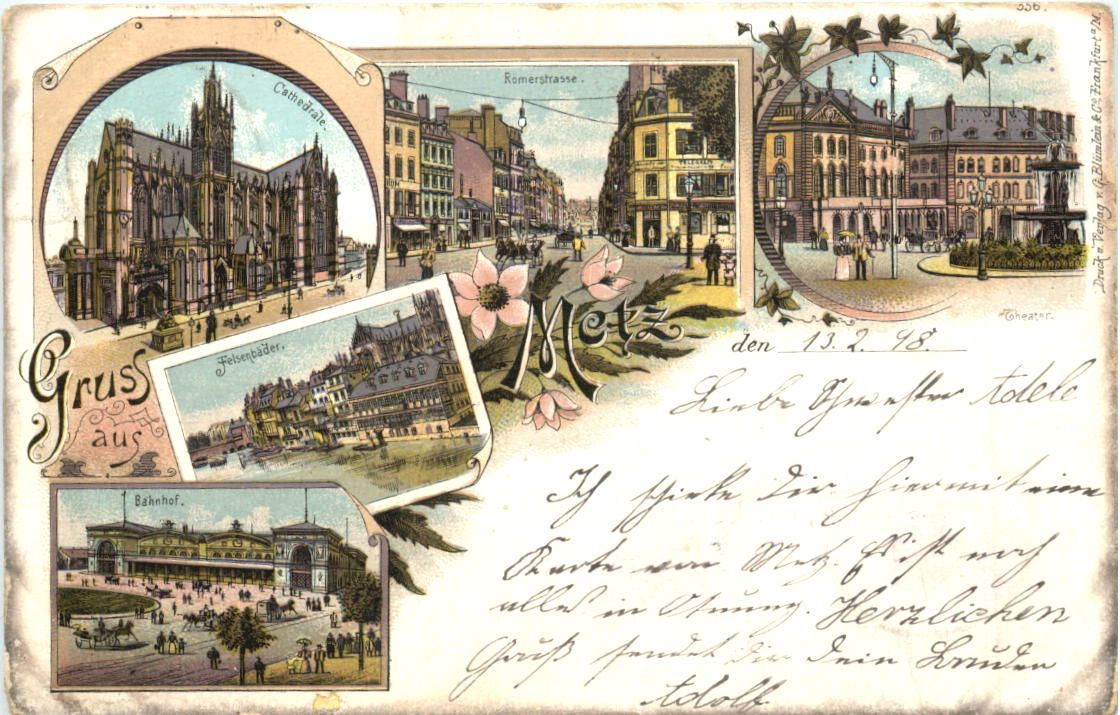 556.
Cathedrale.
Römerstrasse.
Gruss
aus
Metz
Felsenbäder.
Bahnhof.
Theater.
Druck u. Verlag v. G. Blümlein & Co. Frankfurt a/M.
den 13. 2. 98
Liebe Schwester Adele
Ich schicke Dir hiermit eine
Karte von Metz. Es ist noch
alles in Ordnung. Herzlichen
Gruß sendet dir Dein Bruder
Adolf